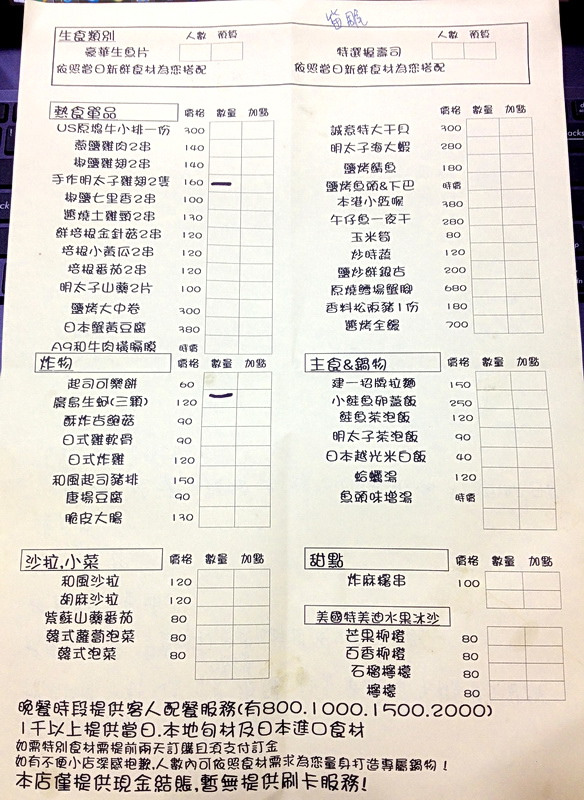 生食類別 人數 預算 人數 預算
豪華生魚片 特選握壽司
依照當日新鮮食材為您搭配 依照當日新鮮食材為您搭配
熱食單品 價格 數量 加點
US原塊牛小排一份 300
蔥鹽雞肉2串 140
椒鹽雞翅2串 140
手作明太子雞翅2隻 160
椒鹽七里香2串 100
醬燒土雞頸2串 130
鮮培根金針菇2串 120
培根小黃瓜2串 120
培根番茄2串 120
明太子山藥2片 100
鹽烤大中卷 300
日本蟹黃豆腐 380
A9和牛肉橫膈膜 時價
價格 數量 加點
誠意特大干貝 300
明太子海大蝦 280
鹽烤鯖魚 180
鹽烤魚頭&下巴 時價
本港小魷喔 380
午仔魚一夜干 280
玉米筍 80
炒時蔬 120
鹽炒鮮銀杏 200
原燒鱈場蟹腳 680
香料松阪豬1份 180
醬烤全鰻 700
炸物 價格 數量 加點
起司可樂餅 60
廣島生蚵(三顆) 120
酥炸杏鮑菇 90
日式雞軟骨 90
日式炸雞 120
和風起司豬排 150
唐揚豆腐 90
脆皮大腸 130
主食&鍋物 價格 數量 加點
建一招牌拉麵 150
小鮭魚卵蓋飯 250
鮭魚茶泡飯 120
明太子茶泡飯 90
日本越光米白飯 40
蛤蠣湯 120
魚頭味增湯 時價
沙拉.小菜 價格 數量 加點
和風沙拉 120
胡麻沙拉 120
紫蘇山藥番茄 80
韓式蘿蔔泡菜 80
韓式泡菜 80
甜點 價格 數量 加點
炸麻糬串 100
美國特美迪水果冰沙
芒果柳橙 80
百香柳橙 80
石榴檸檬 80
檸檬 80
晚餐時段提供客人配餐服務(有800.1000.1500.2000)
1千以上提供當日.本地旬材及日本進口食材
如需特別食材需提前兩天訂購且須支付訂金
如有不便小店深感抱歉.人數內可依照食材需求為您量身打造專屬鍋物!
本店僅提供現金結賬,暫無提供刷卡服務!